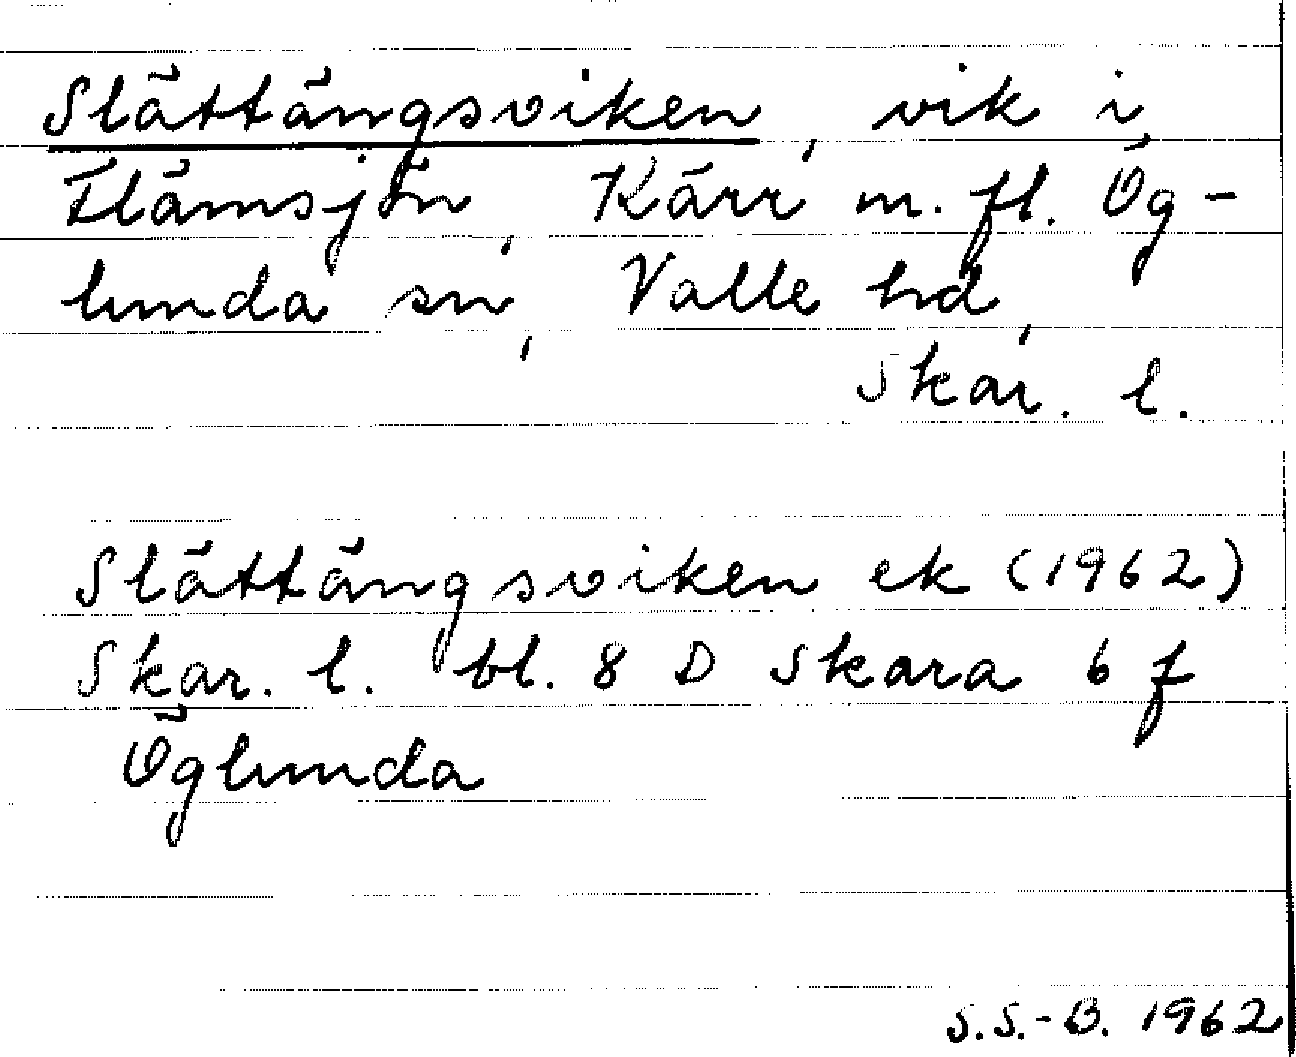 Slättängsviken, vik i
Flämsjön, Kärr m. fl. Ög-
lunda sn, Valle hd,
Skar. l.
Slättängsviken ek (1962)
Skar. l. bl. 8 D Skara 6 f
Öglunda
S.S.-B. 1962